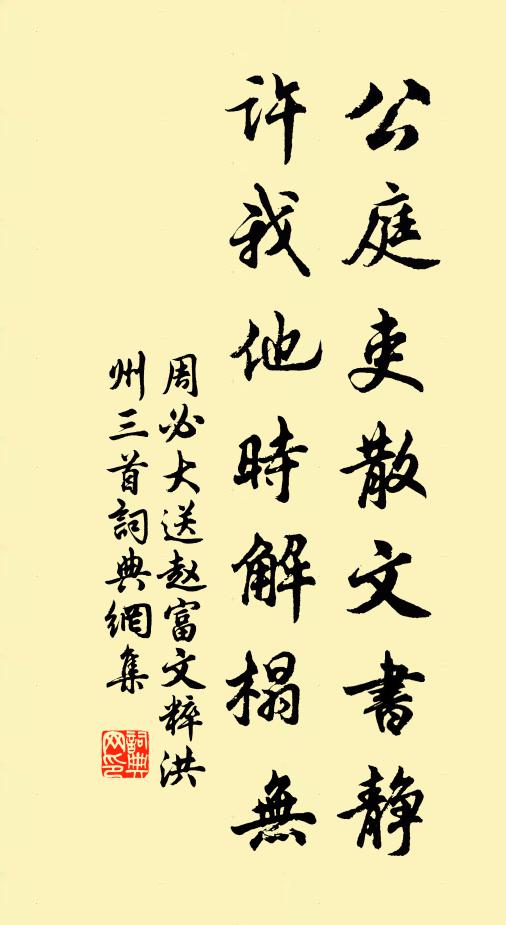 公庭吏散文書静
許我他時解榻無
周必大送赵富文粹洪
州三首詞典網集
詞典網印